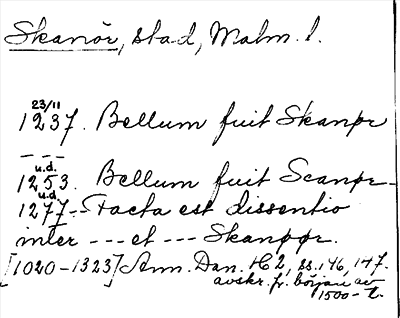 Skanör, stad, Malm. l.
23/11
1237. Bellum fuit Skanør
- - -
u.d.
1253. Bellum fuit Scanør-
u.d.
1277-- Facta est dissentio
inter --- et --- Skanøør.
[1020-1323] Ann. Dan. H 2, ss. 146, 147.
avskr. fr. början av
1500-t.